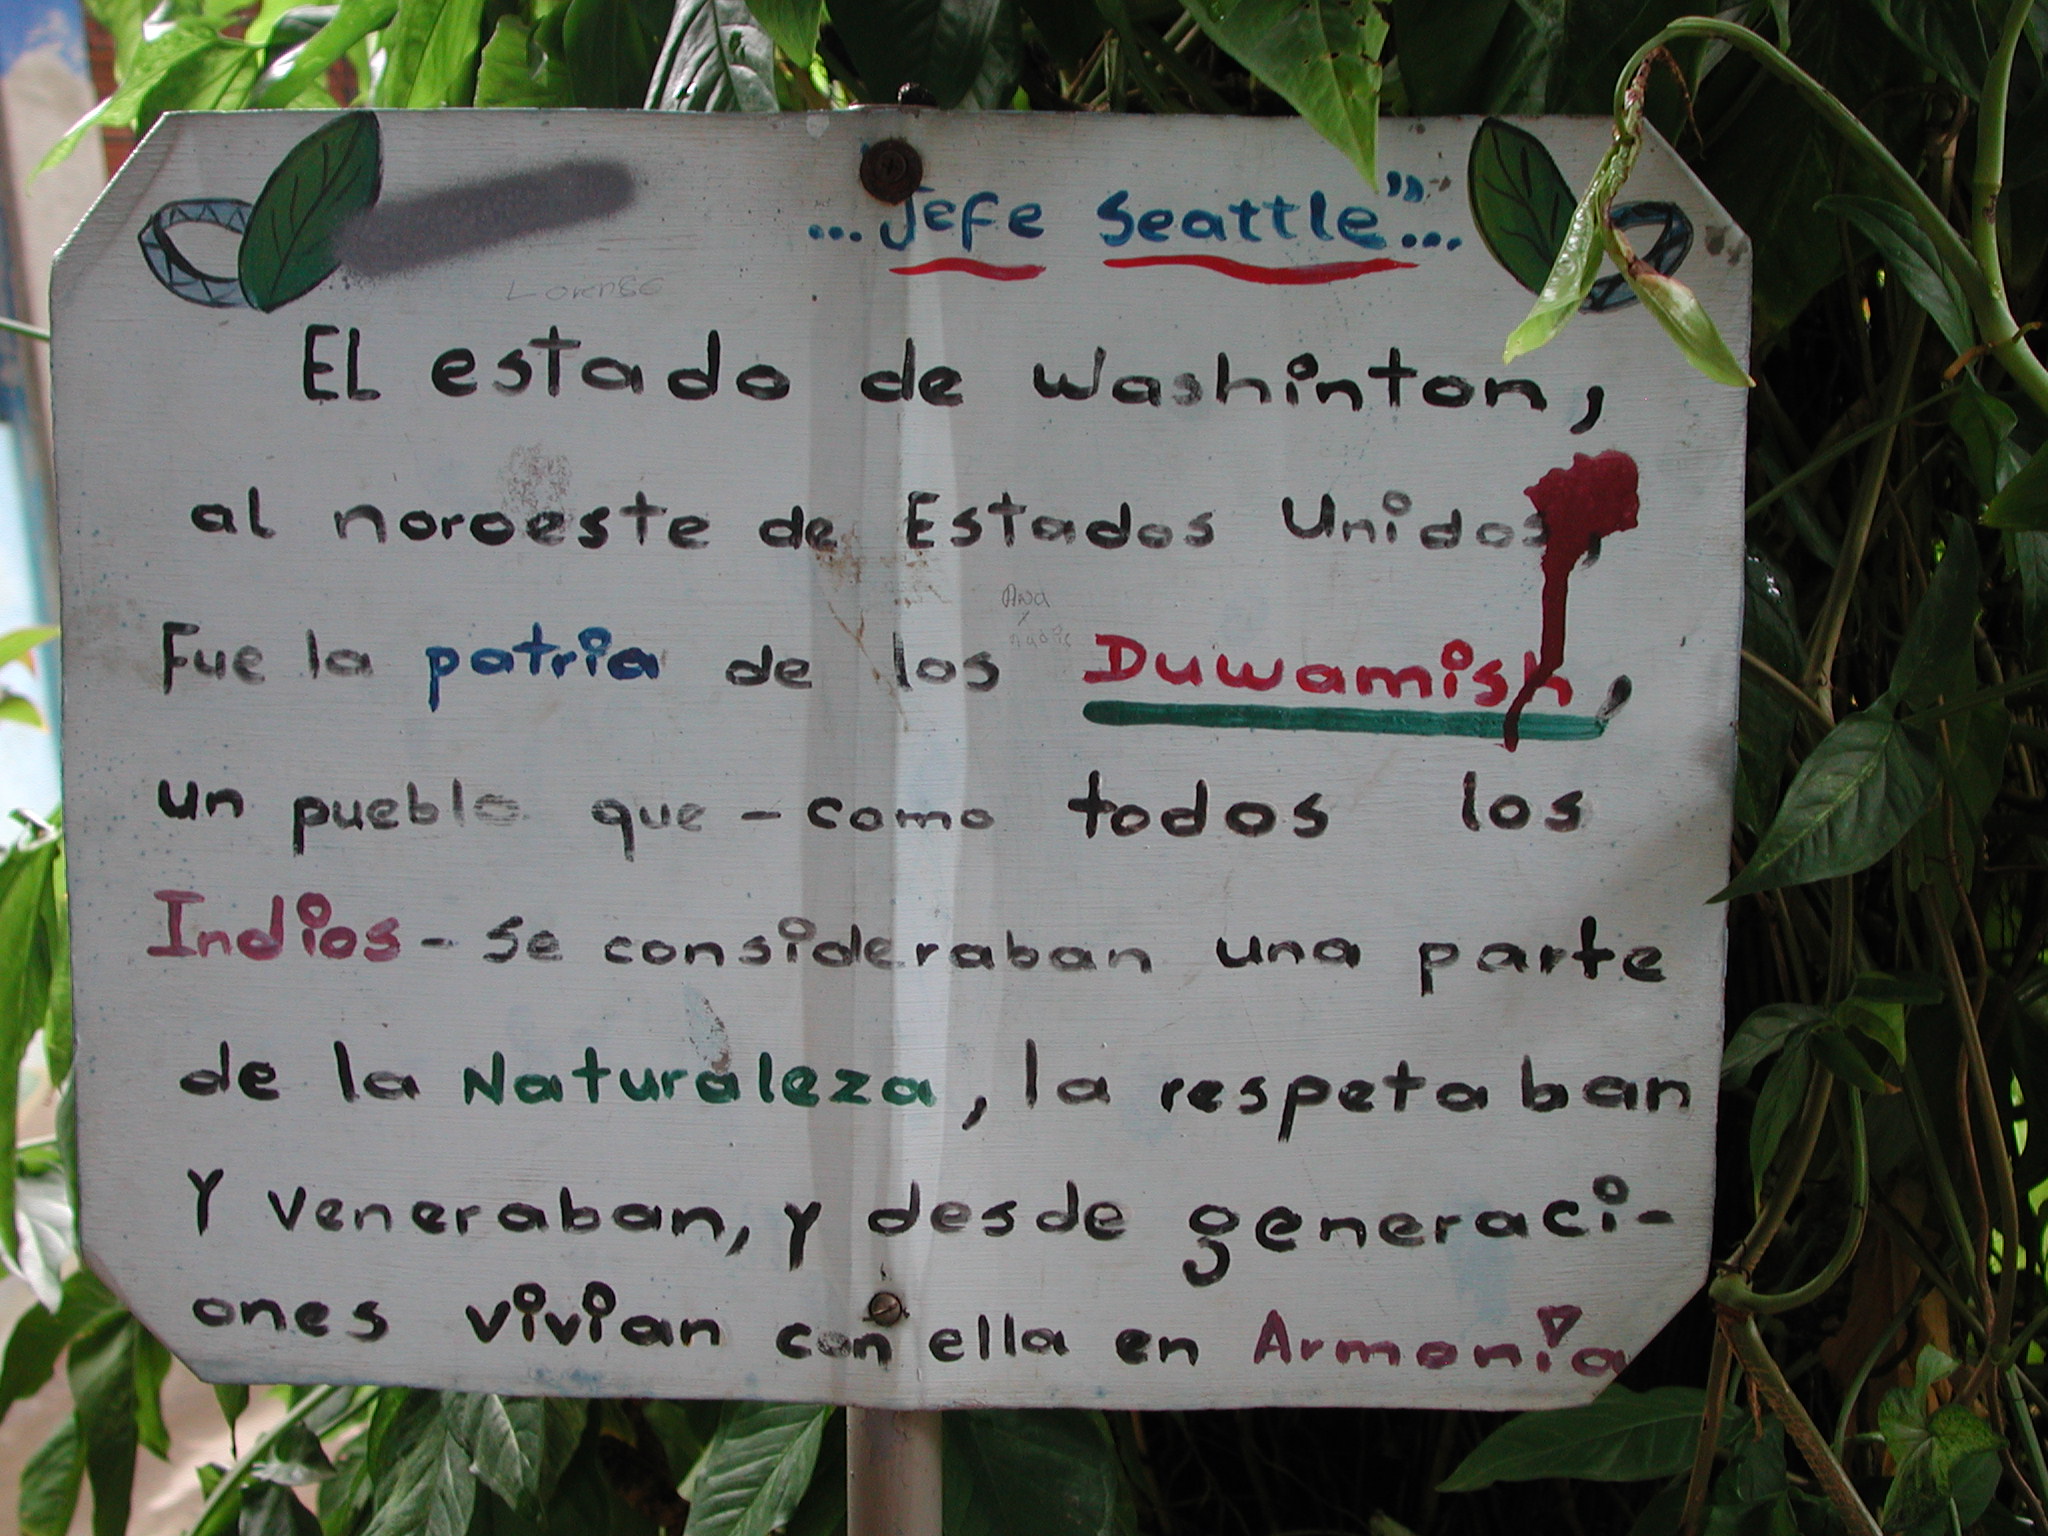 ...Jefe Seattle"...
Lorense
EL estado de Washinton,
al noroeste de Estados Unidos,
Fue la patria de los Duwamish,
un pueblo que - como todos los
Indios - se consideraban una parte
de la Naturaleza, la respetaban
Y veneraban, y desde generaci-
ones vivian con ella en Armonia